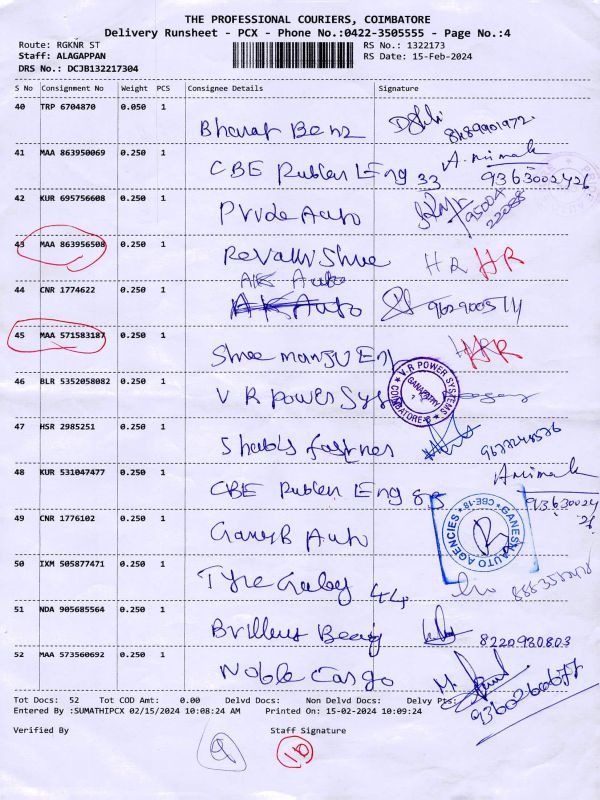 THE PROFESSIONAL COURIERS, COIMBATORE
Delivery Runsheet - PCX - Phone No.:0422-3505555 - Page No.:4
Route: RGKNR ST RS No.: 1322173
Staff: ALAGAPPAN RS Date: 15-Feb-2024
DRS No.: DCJB132217304
S No Consignment No Weight PCS Consignee Details Signature
40 TRP 6704870 0.050 1
Bharat Benz
41 MAA 863950069 0.250 1
CBE Rubber Eng 33 9363002426
42 KUR 695756608 0.250 1
Pride Auto 95004 22088
43 MAA 863956508 0.250 1
Revathi Shree HR HR
AK Auto
44 CNR 1774622 0.250 1
AK Auto
45 MAA 571583187 0.250 1
Shree manju Eng HR
46 BLR 5352058082 0.250 1
V R Power Sys
V.R POWER SYSTEMS GANAPATHY COIMBATORE-6
47 HSR 2985251 0.250 1
48 KUR 531047477 0.250 1
CBE Rubber Eng
49 CNR 1776102 0.250 1
Auto
GANESH AUTO AGENCIES CBE-18
50 IXM 505877471 0.250 1
Tyre 44
51 NDA 905685564 0.250 1
8220980803
52 MAA 573560692 0.250 1
Noble Cargo
Tot Docs: 52 Tot COD Amt: 0.00 Delvd Docs: Non Delvd Docs: Delvy Pts:
Entered By :SUMATHIPCX 02/15/2024 10:08:24 AM Printed On: 15-02-2024 10:09:24
Verified By Staff Signature